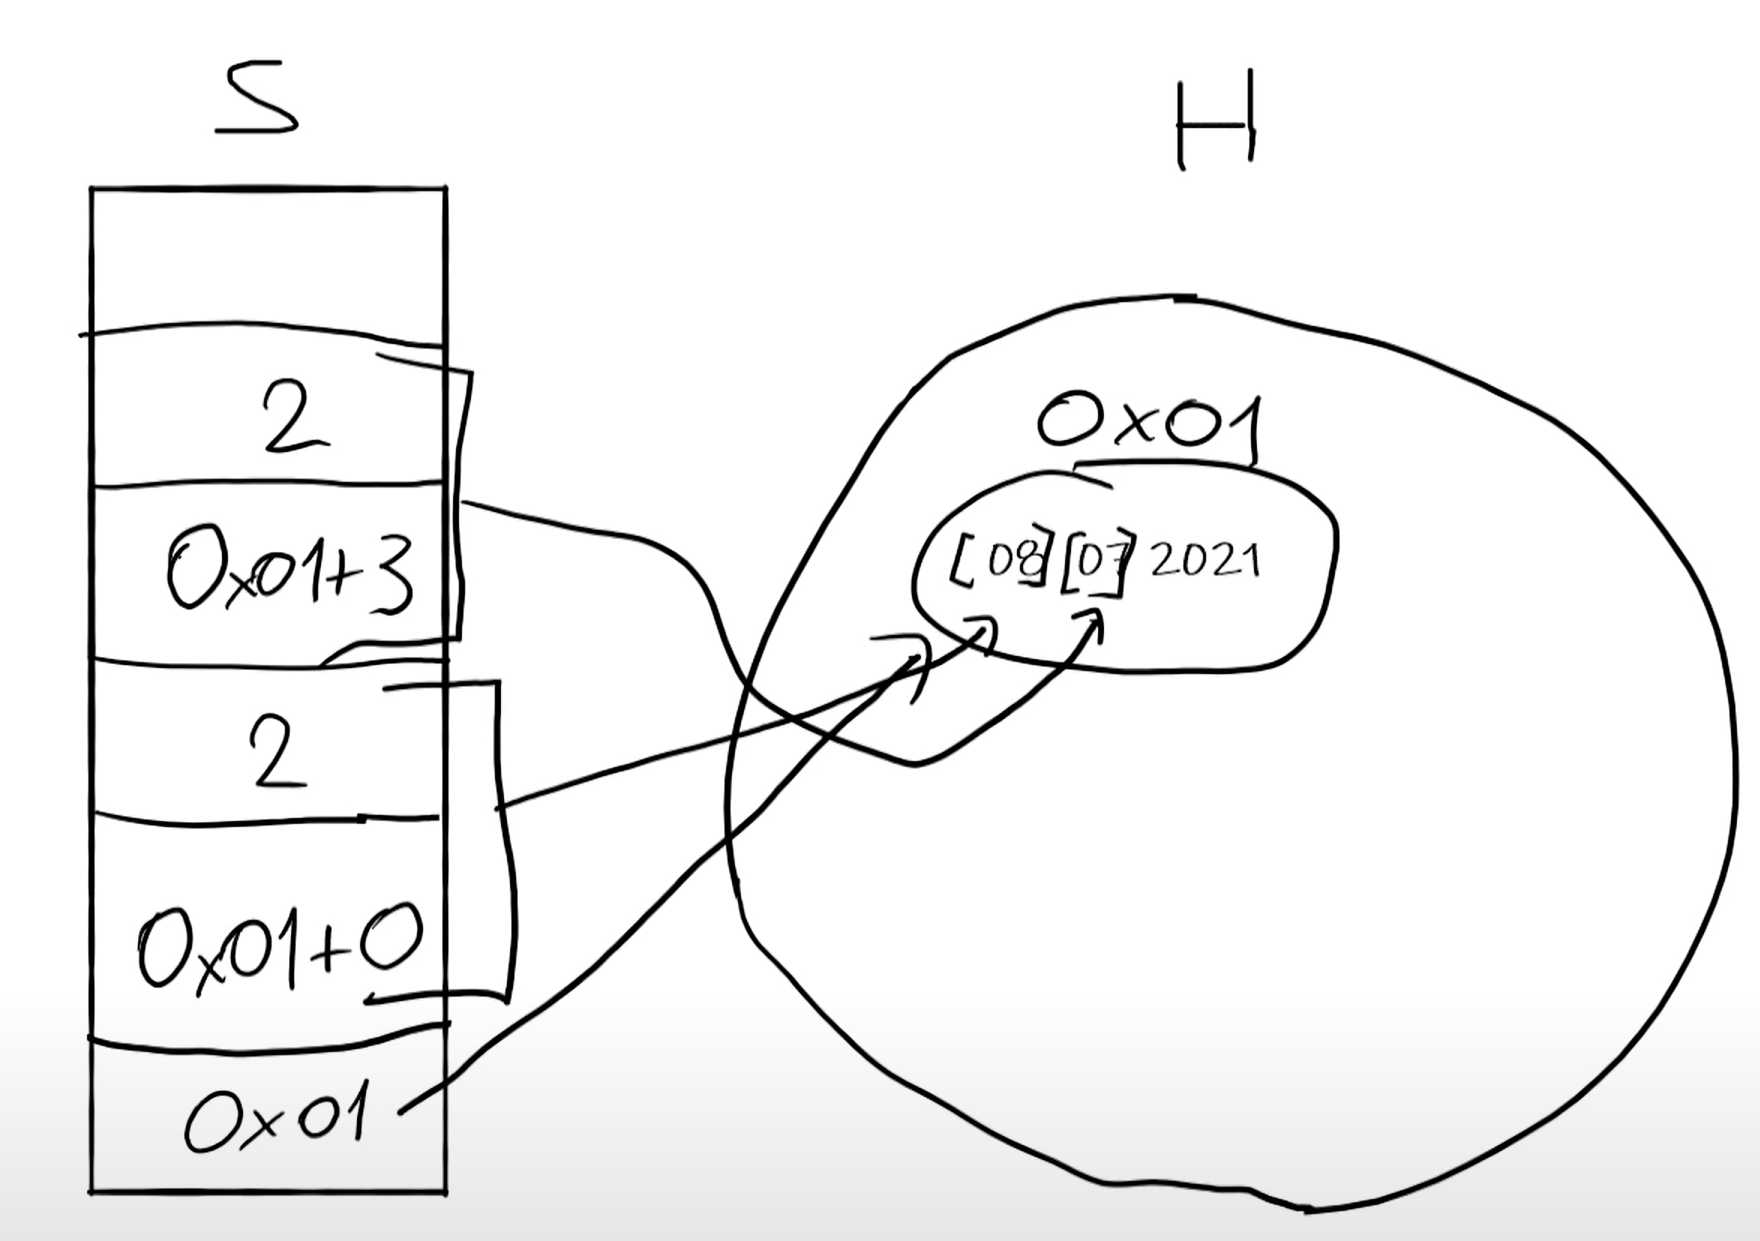 S
H
2
0x01+3
2
0x01+0
0x01
0x01
[08][07] 2021